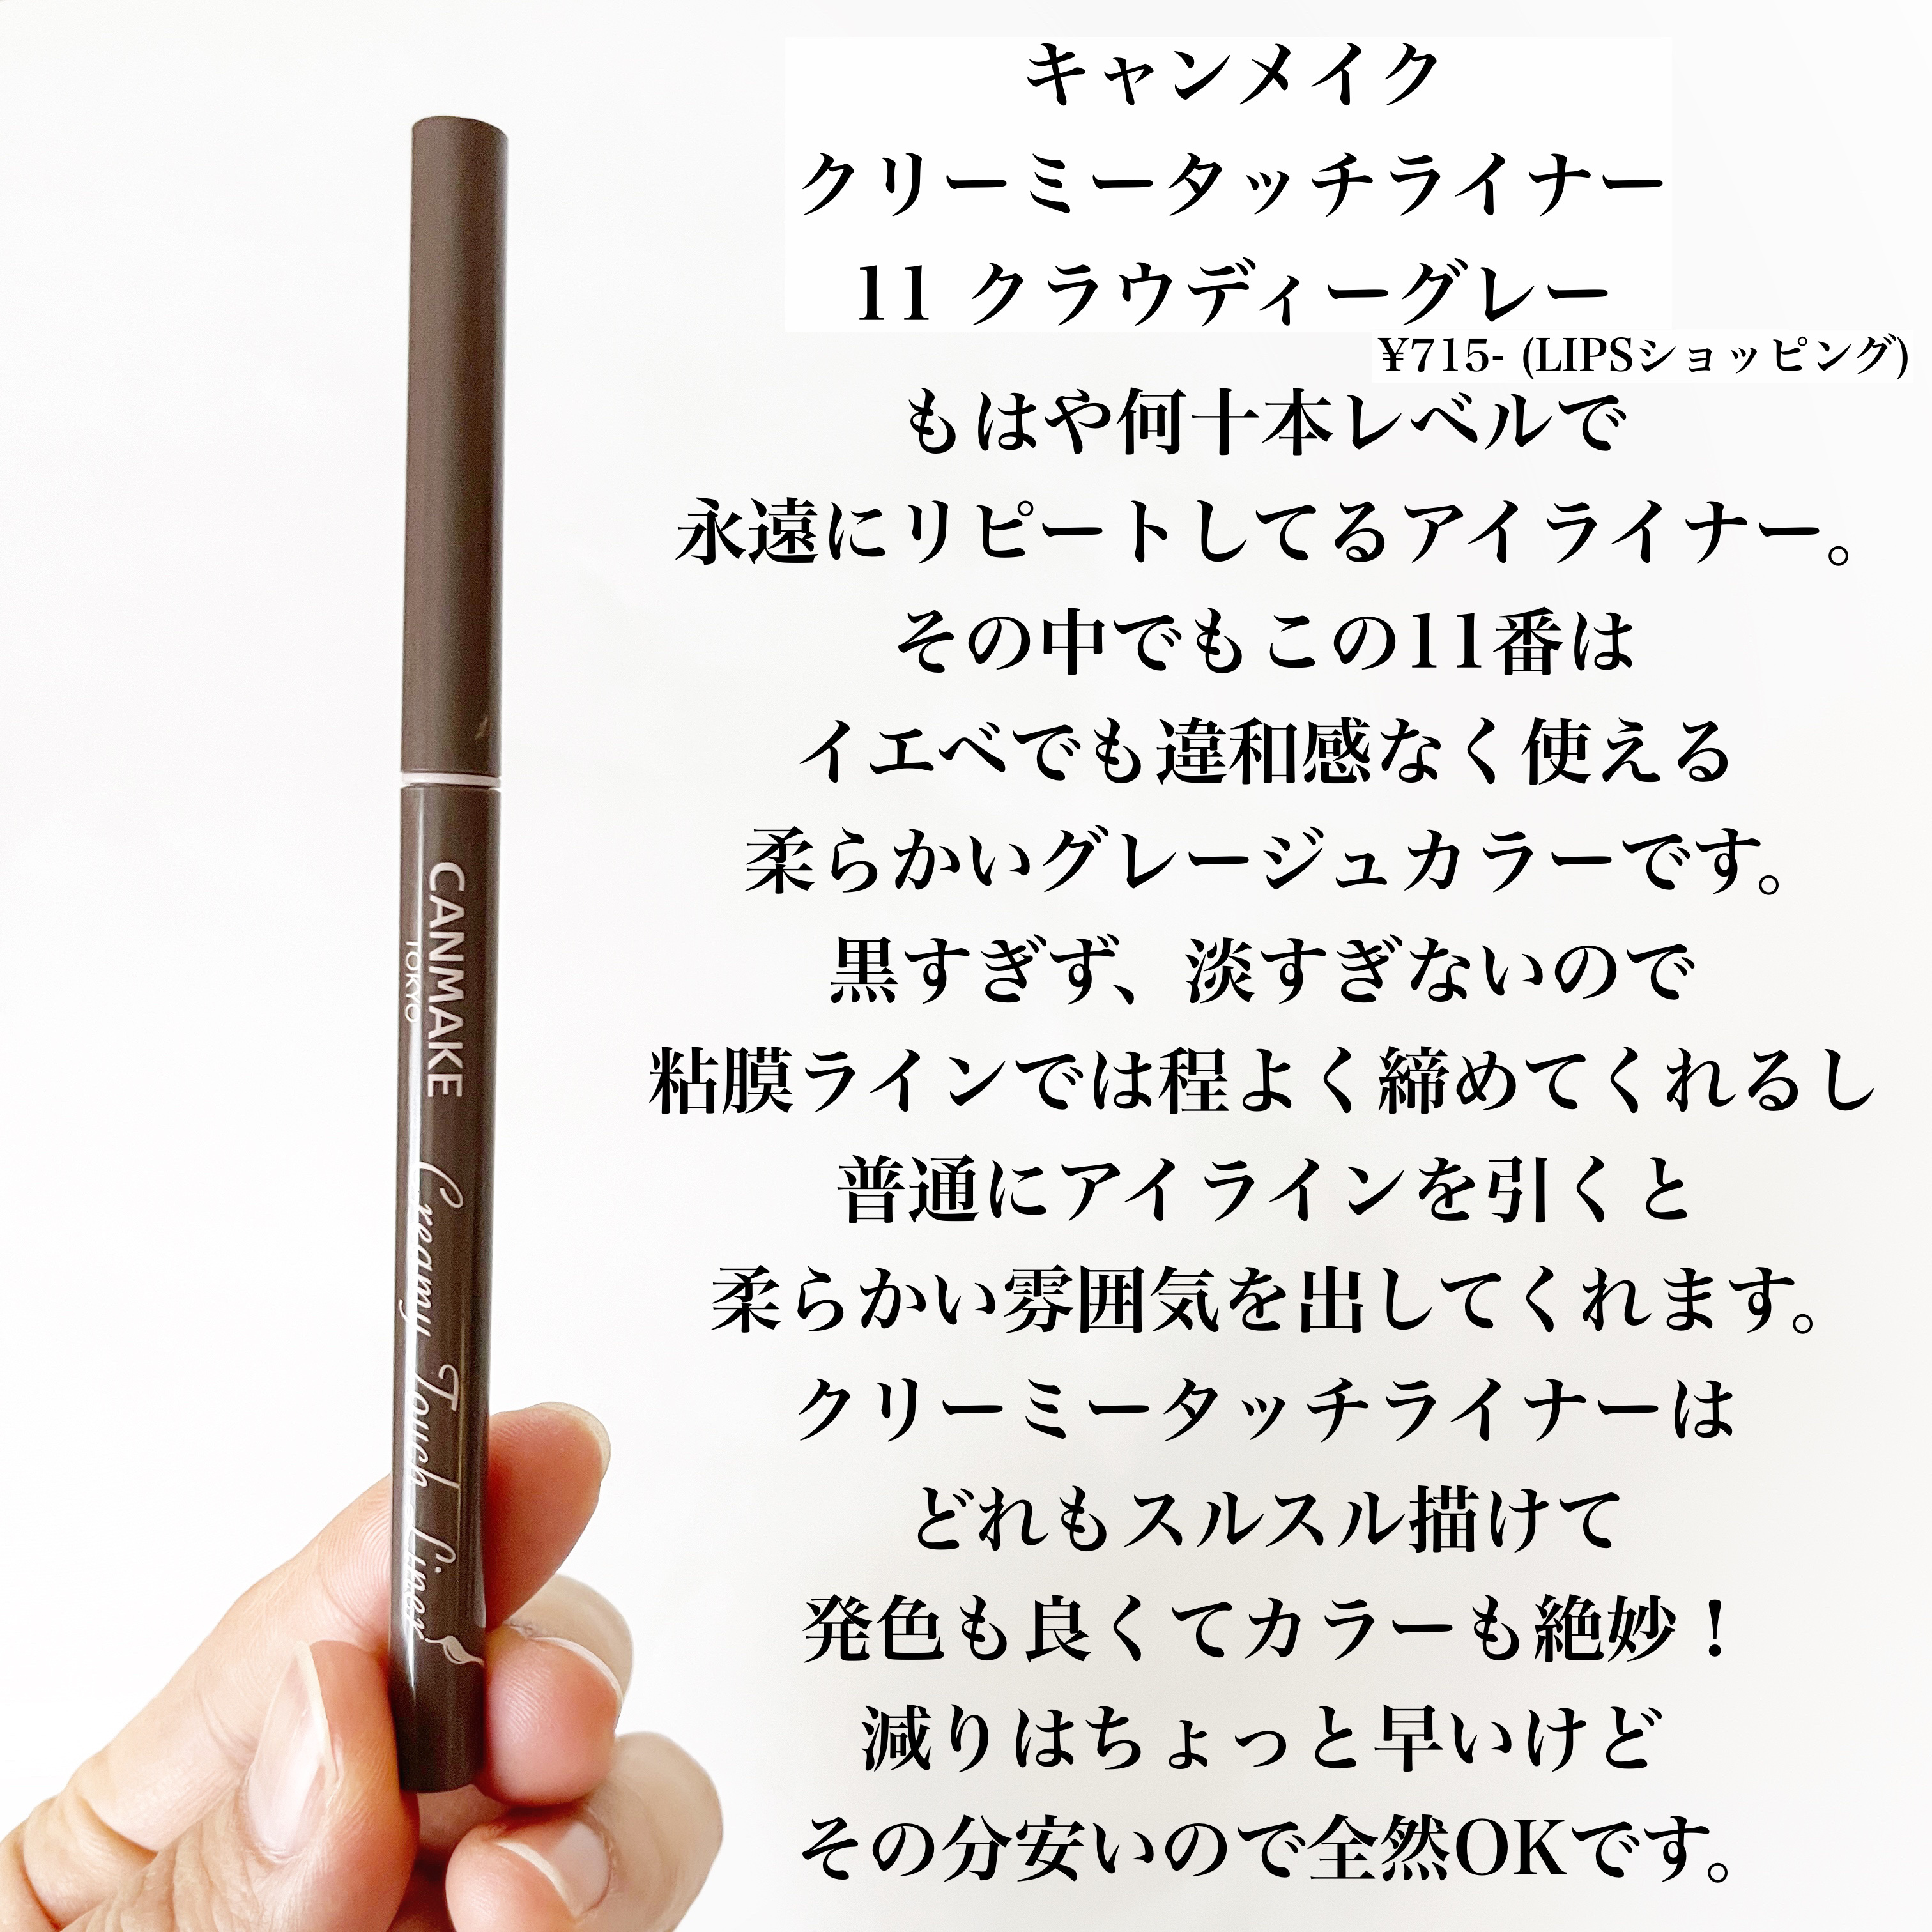 キャンメイク
クリーミータッチライナー
11 クラウディーグレー
¥715- (LIPSショッピング)
もはや何十本レベルで
永遠にリピートしてるアイライナー。
その中でもこの11番は
イエベでも違和感なく使える
柔らかいグレージュカラーです。
黒すぎず、淡すぎないので
粘膜ラインでは程よく締めてくれるし
普通にアイラインを引くと
柔らかい雰囲気を出してくれます。
クリーミータッチライナーは
どれもスルスル描けて
発色も良くてカラーも絶妙！
減りはちょっと早いけど
その分安いので全然OKです。
CANMAKE
TOKYO
Creamy Touch Liner